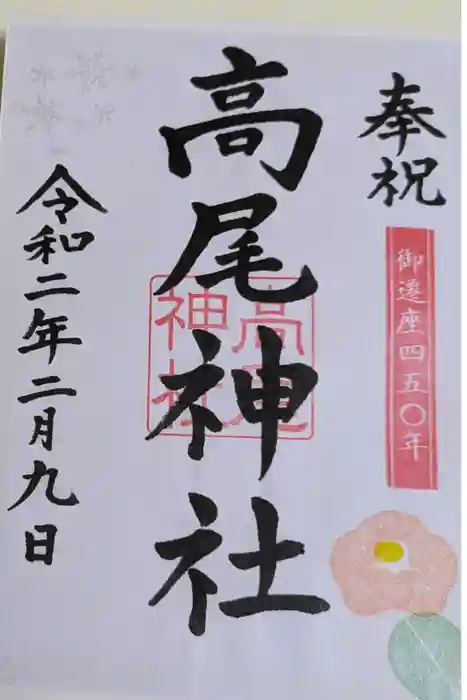 奉祝
御遷座四五〇年
高尾神社
高尾
神社
令和二年二月九日